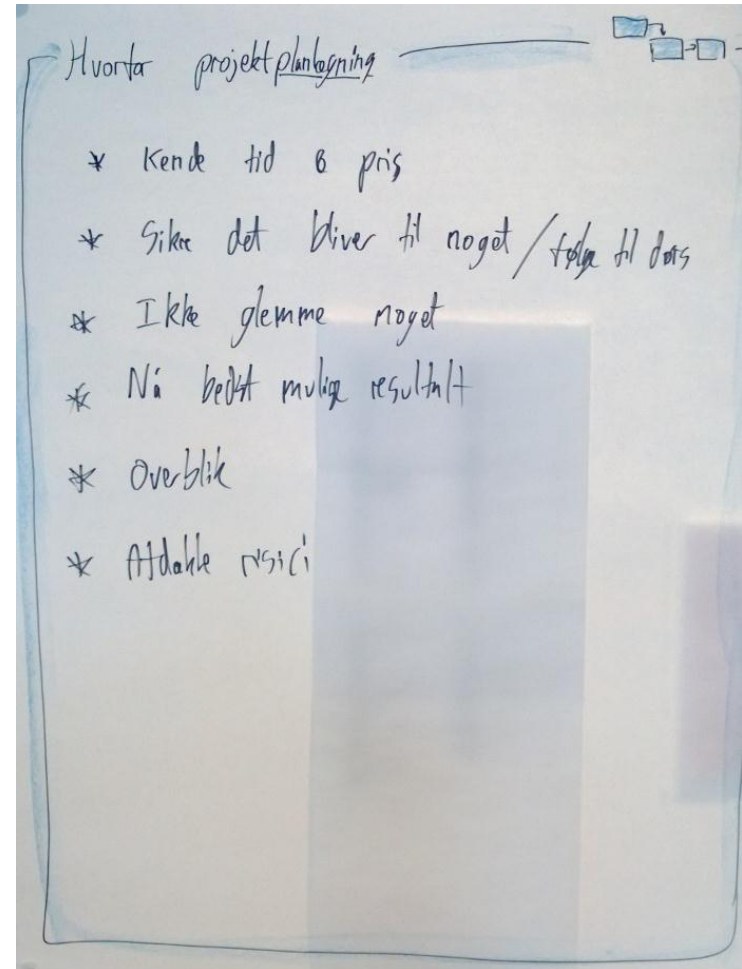 Hvorfor projektplanlægning
* Kende tid & pris
* Sikre det bliver til noget / følge til dørs
* Ikke glemme noget
* Nå bedst mulige resultalt
* Overblik
* Afdække risici